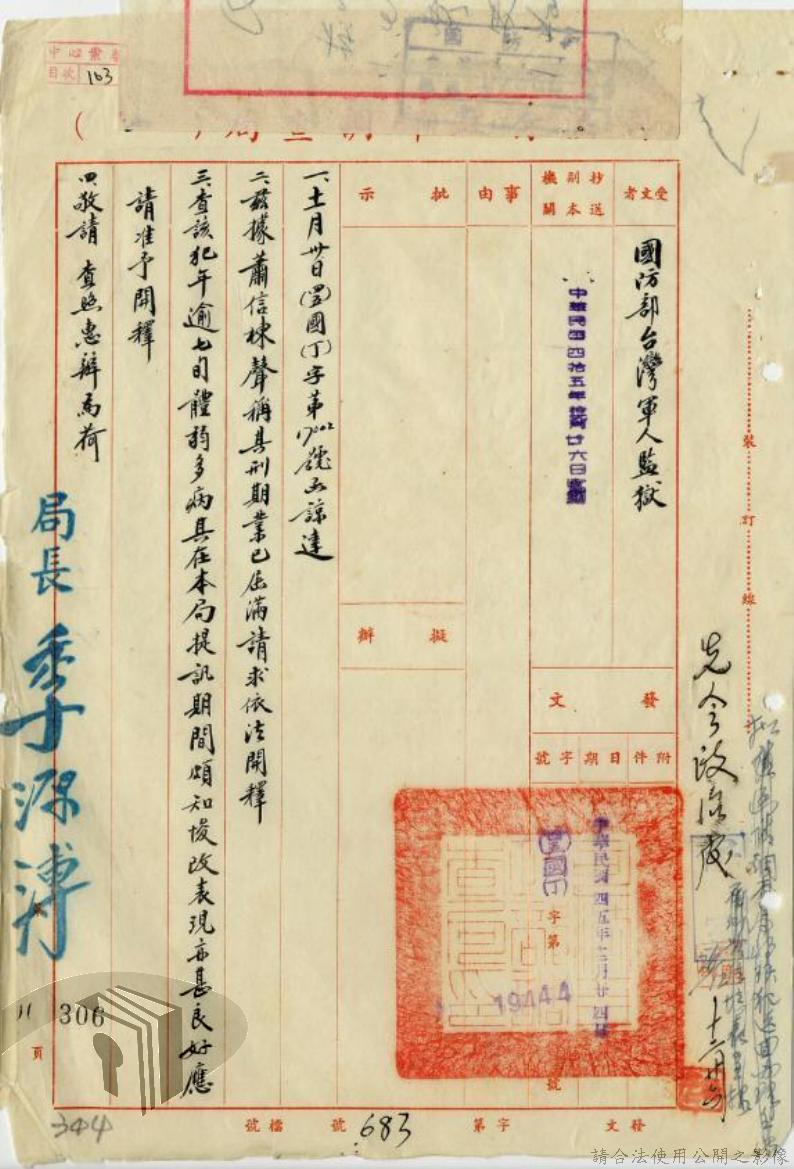 受文者
國防部台灣軍人監獄
抄送副本機關
中華民國四拾五年拾貳月廿六日
事由
批示
擬辦
發文
附件
日期
字號
中華民國四五年十二月廿四日
(四五)國(丁)
字第
19444
號
一、十一月卅日(四五)國(丁)字第17002號函諒達
二、茲據蕭信棟聲稱其刑期業已屆滿請求依法開釋
三、查該犯年逾七旬體弱多病其在本局提訊期間頗知悛改表現亦甚良好應
請准予開釋
四、敬請 查照惠辦為荷
局長 季源溥
裝訂線
先令政治處
十二月廿六
中心業務
目次 163
11
306
頁
344
發文 字第 683 號 檔號
請合法使用公開之影像